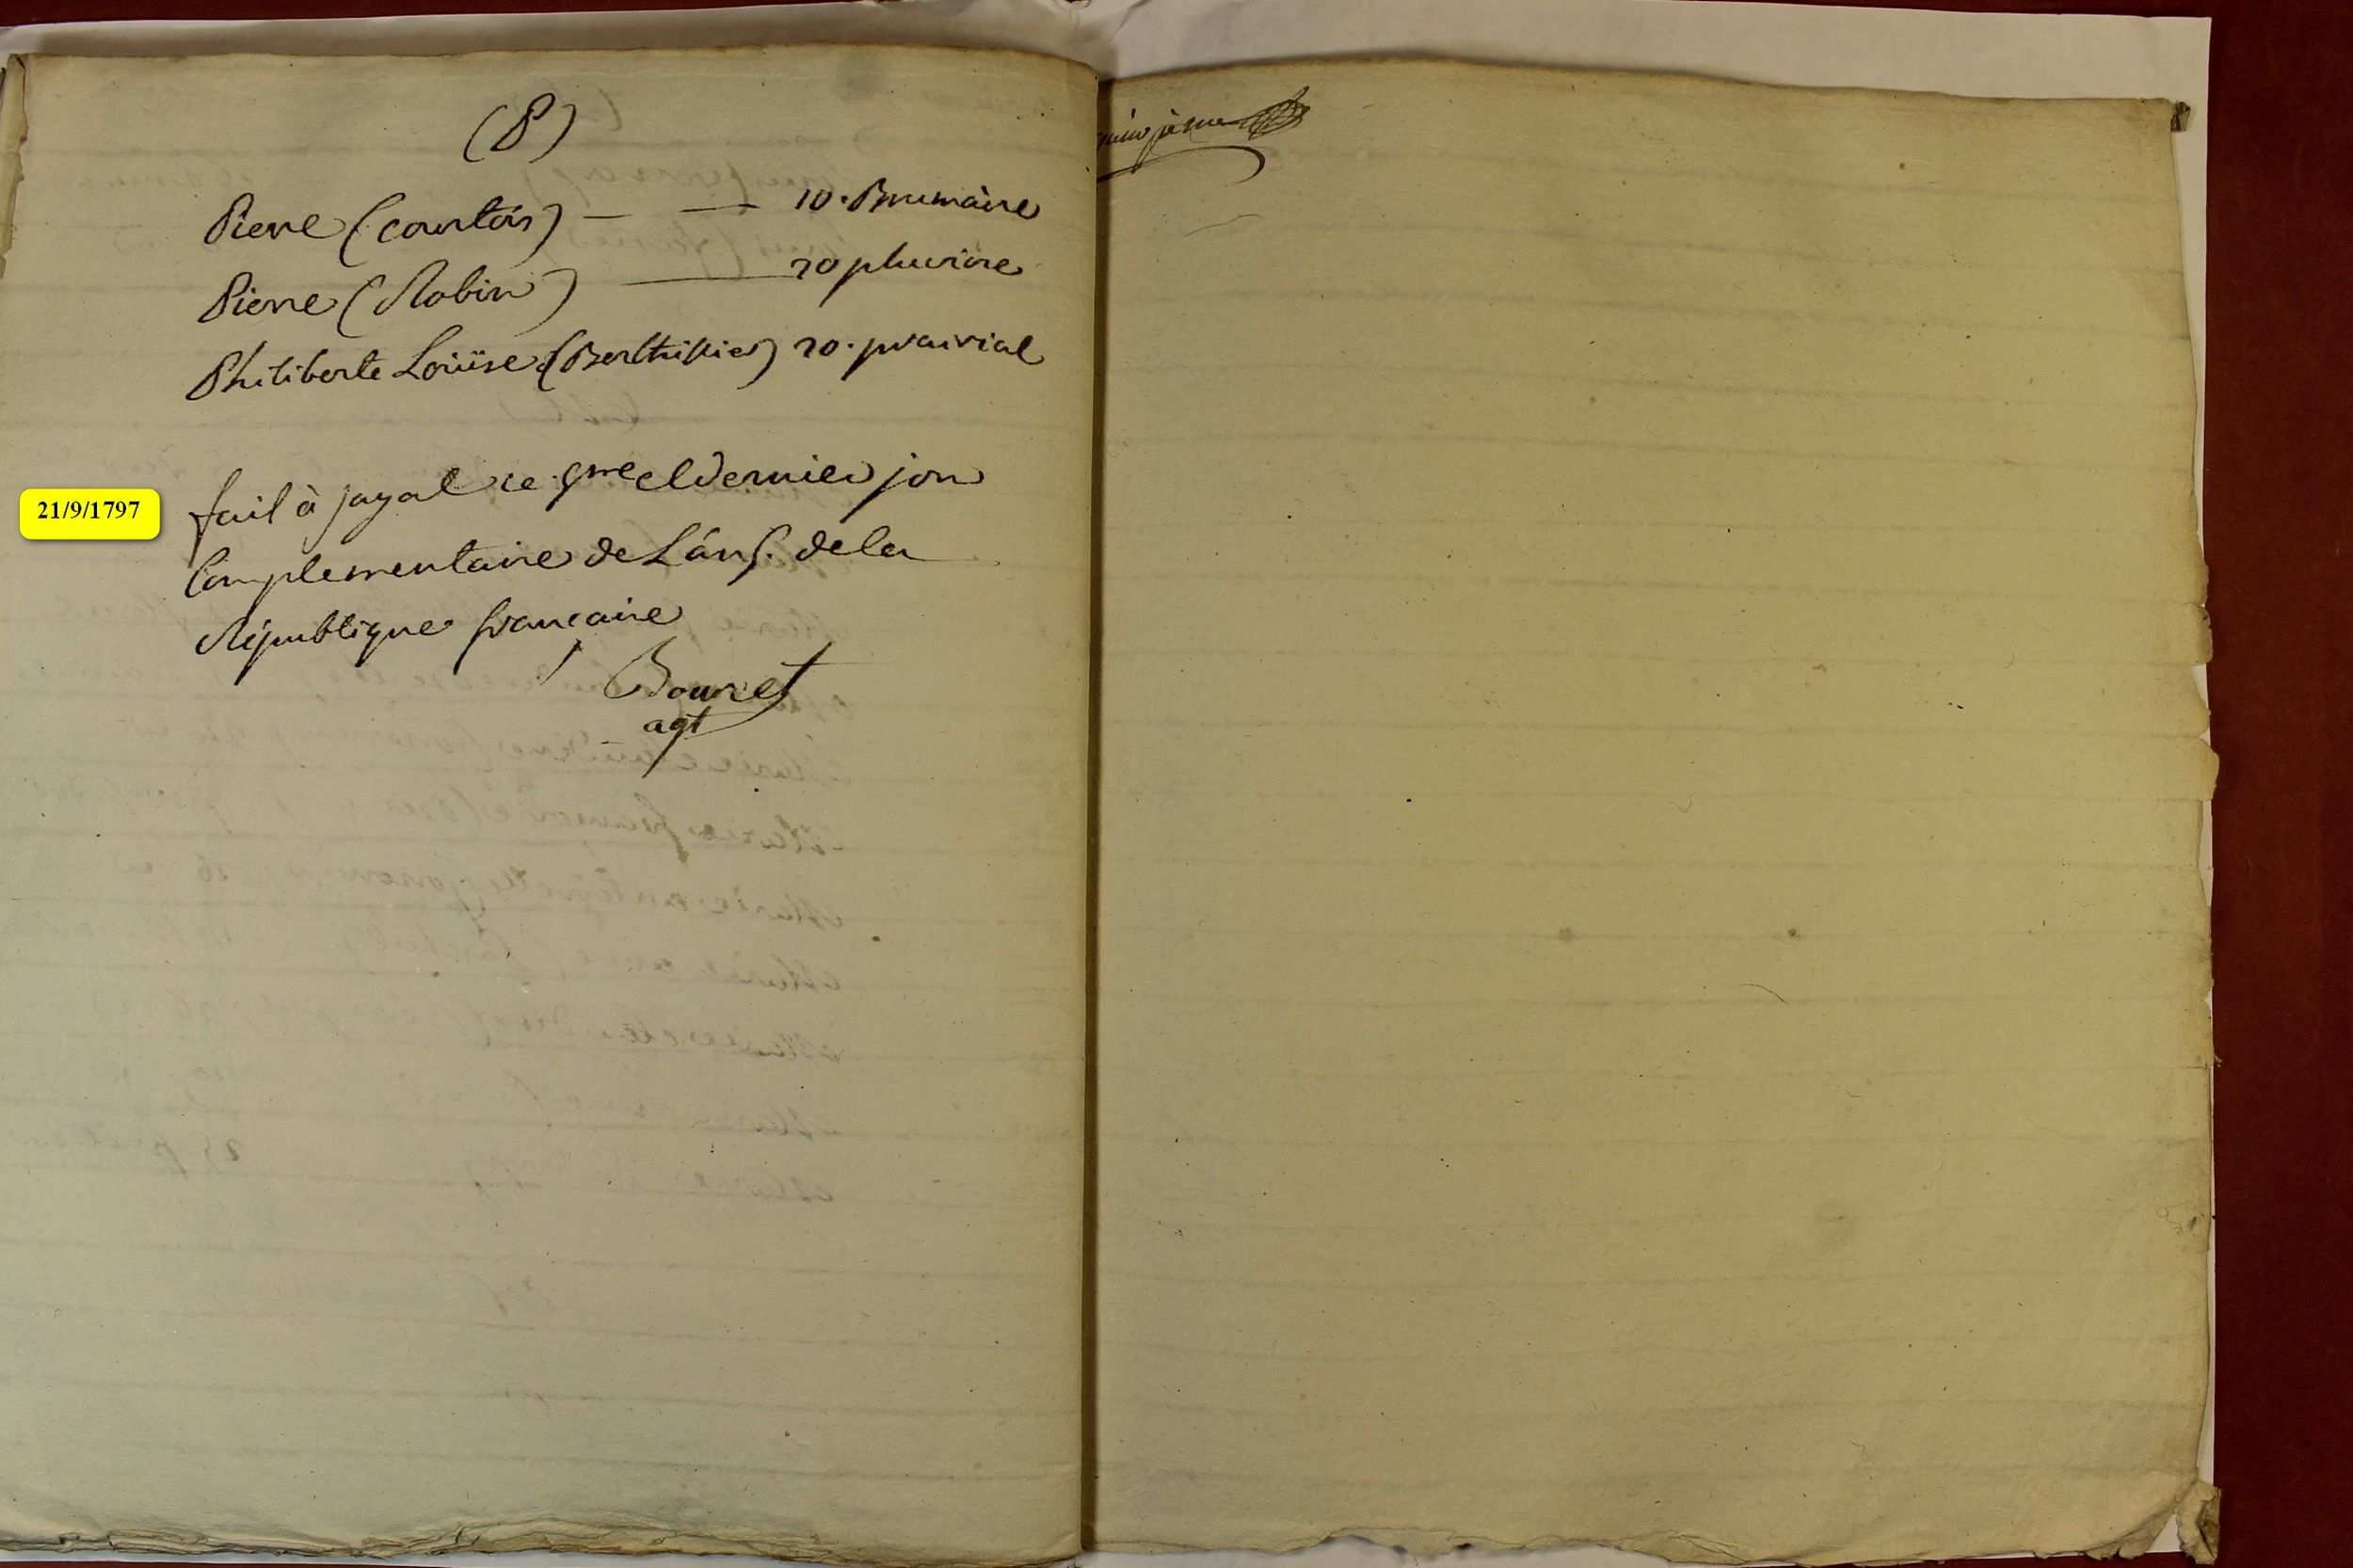 (P)
Pierre (courtois) — — 10. Brumaire
Pierre (Robin) — 20 pluviôse
Philiberte Loüise (Berthillier) 20. prairial
21/9/1797
fait à jayat ce 5me et dernier jour
Complementaire de L'an 5. de la
République française
Bouret
agt